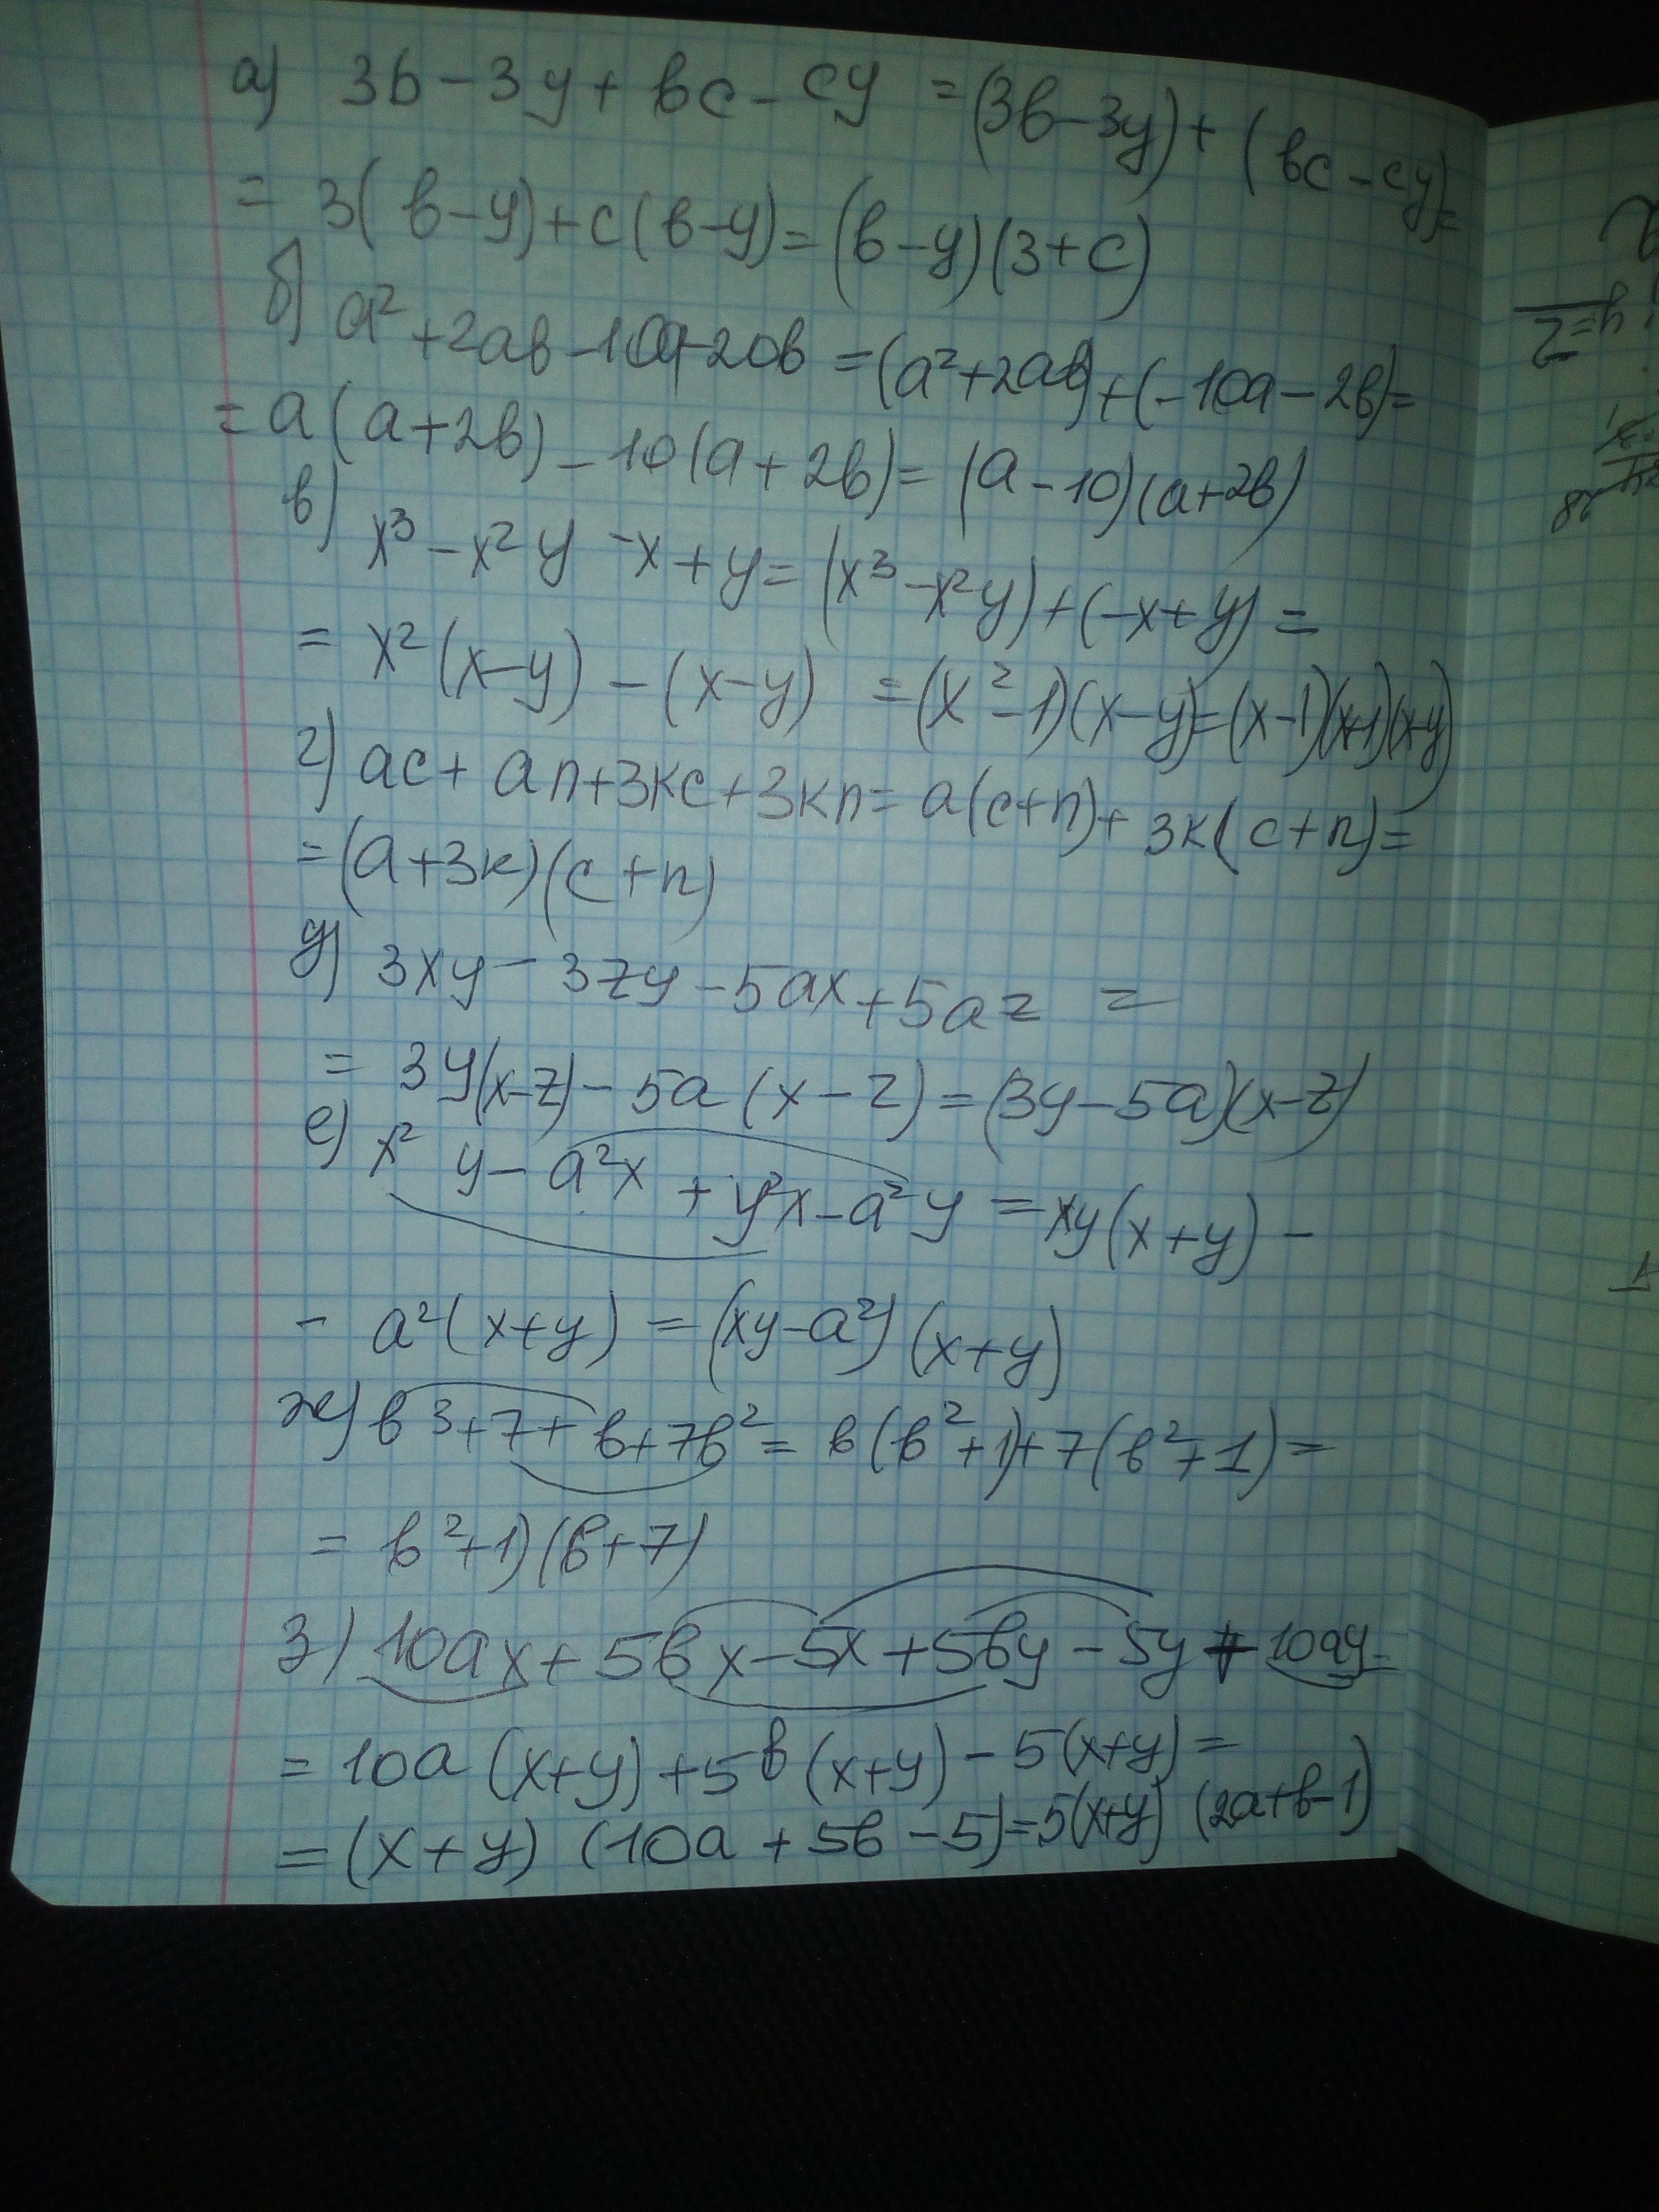 а) 3b - 3y + bc - cy = (3b - 3y) + (bc - cy) =
= 3(b - y) + c(b - y) = (b - y)(3 + c)
б) a² + 2ab - 10a - 20b = (a² + 2ab) + (-10a - 2b) =
= a(a + 2b) - 10(a + 2b) = (a - 10)(a + 2b)
в) x³ - x²y - x + y = (x³ - x²y) + (-x + y) =
= x²(x - y) - (x - y) = (x² - 1)(x - y) = (x - 1)(x + 1)(x - y)
г) ac + an + 3kc + 3kn = a(c + n) + 3k(c + n) =
= (a + 3k)(c + n)
д) 3xy - 3zy - 5ax + 5az =
= 3y(x - z) - 5a(x - z) = (3y - 5a)(x - z)
е) x²y - a²x + y²x - a²y = xy(x + y) -
- a²(x + y) = (xy - a²)(x + y)
ж) b³ + 7 + b + 7b² = b(b² + 1) + 7(b² + 1) =
= b² + 1)(b + 7)
з) 10ax + 5bx - 5x + 5by - 5y + 10ay =
= 10a(x + y) + 5b(x + y) - 5(x + y) =
= (x + y)(10a + 5b - 5) = 5(x + y)(2a + b - 1)
y = 2